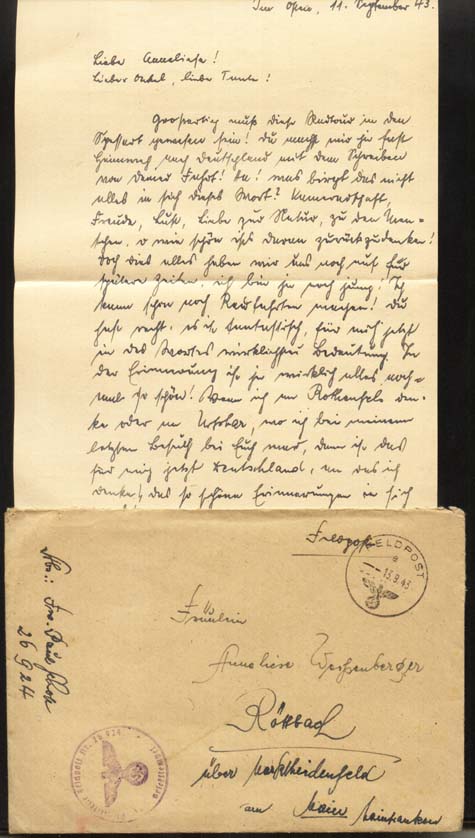 Im Osten, 11. September 43.
Liebe Anneliese!
Lieber Onkel, liebe Tante!
Großartig muß diese Radtour in den
Spessart gewesen sein! Du machst mir ja fast
Heimweh nach Deutschland mit dem Schreiben
von deiner Fahrt! Ja! was birgt das nicht
alles in sich dieses Wort? Kameradschaft,
Freude, Lust, Liebe zur Natur, zu den Men-
schen, o wie schön ists daran zurückzudenken!
Doch dies alles heben wir uns noch auf für
spätere Zeiten, ich bin ja noch jung! Ich
kann schon noch Radfahrten machen! Du
hast recht, es ist fantastisch, für mich jetzt
in des Wortes wirklichster Bedeutung. In
der Erinnerung ist ja wirklich alles noch-
mal so schön! Wenn ich an Rothenfels den-
ke oder an wo ich bei meinem
letzten Besuch bei Euch war, dann ist das
für mich jetzt Deutschland, an das ich
denke, das so schöne Erinnerungen in sich
Feldpost
FELDPOST
13.9.43
Fräulein
Anneliese
Röttbach
über Marktheidenfeld
am Main Mainfranken
Abs.:
26924